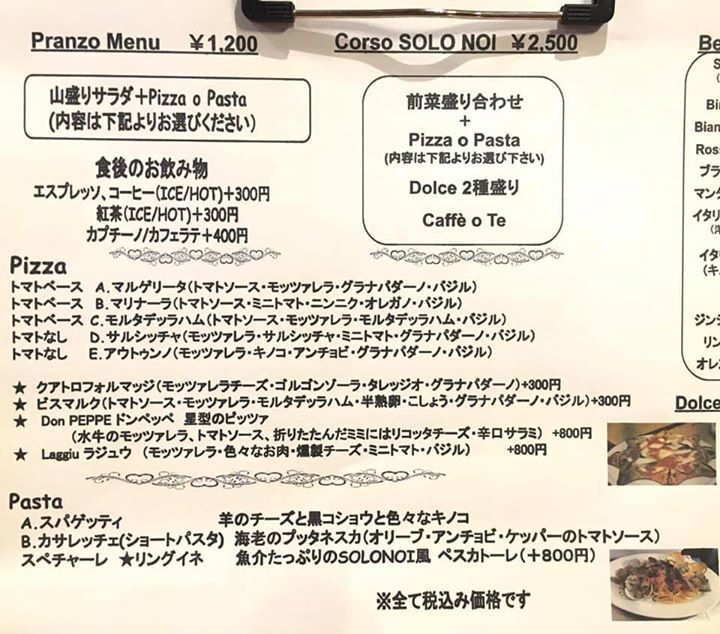 Pranzo Menu ￥1,200
山盛りサラダ+Pizza o Pasta
(内容は下記よりお選びください)
食後のお飲み物
エスプレッソ、コーヒー(ICE/HOT)+300円
紅茶(ICE/HOT)+300円
カプチーノ/カフェラテ+400円
Corso SOLO NOI ￥2,500
前菜盛り合わせ
+
Pizza o Pasta
(内容は下記よりお選び下さい)
Dolce 2種盛り
Caffè o Te
Pizza
トマトベース A.マルゲリータ(トマトソース・モッツァレラ・グラナパダーノ・バジル)
トマトベース B.マリナーラ(トマトソース・ミニトマト・ニンニク・オレガノ・バジル)
トマトベース C.モルタデッラハム(トマトソース・モッツァレラ・モルタデッラハム・バジル)
トマトなし D.サルシッチャ(モッツァレラ・サルシッチャ・ミニトマト・グラナパダーノ・バジル)
トマトなし E.アウトゥンノ(モッツァレラ・キノコ・アンチョビ・グラナパダーノ・バジル)
★ クアトロフォルマッジ(モッツァレラチーズ・ゴルゴンゾーラ・タレッジオ・グラナパダーノ)+300円
★ ビスマルク(トマトソース・モッツァレラ・モルタデッラハム・半熟卵・こしょう・グラナパダーノ・バジル)+300円
★ Don PEPPE ドンペッペ 星型のピッツァ
(水牛のモッツァレラ、トマトソース、折りたたんだミミにはリコッタチーズ・辛口サラミ) +800円
★ Laggiu ラジュウ (モッツァレラ・色々なお肉・燻製チーズ・ミニトマト・バジル) +800円
Pasta
A.スパゲッティ 羊のチーズと黒コショウと色々なキノコ
B.カサレッチェ(ショートパスタ) 海老のプッタネスカ(オリーブ・アンチョビ・ケッパーのトマトソース)
スペチャーレ ★リングイネ 魚介たっぷりのSOLONOI風 ペスカトーレ(+800円)
※全て税込み価格です
Be
S
Bi
Bian
Ross
ブラ
マンタ
イタリ
イタ
(キ
ジンジ
リン
オレ
Dolce